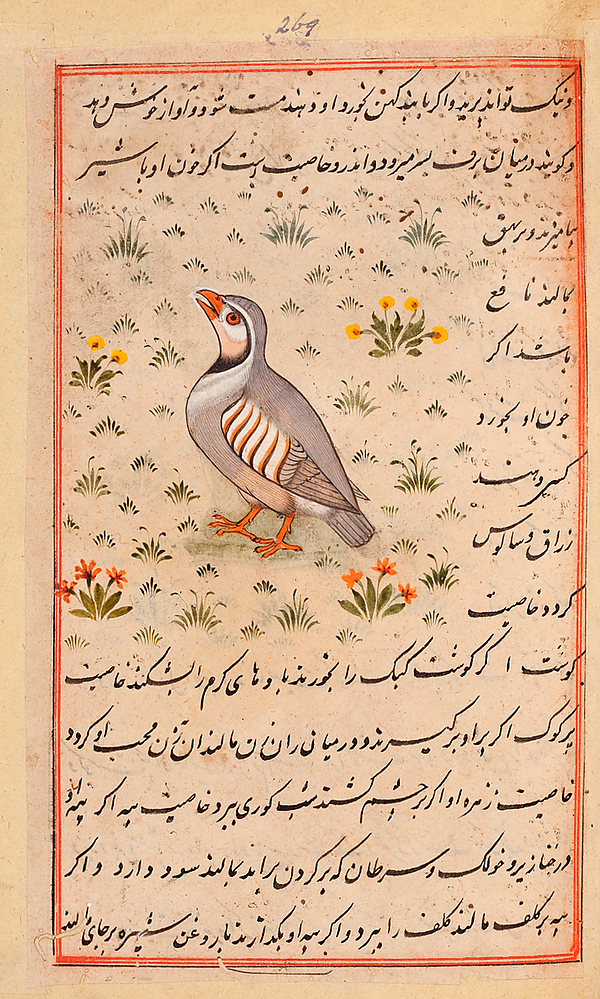 269
ونیک تواند پرید و اگر باید کهن خورد او دهند مست شود و آواز خوش دهد
و گویند در میان برف بسر میرود و اندر و خاصیت است اگر خون او با شیر
بیامیزند و بر بهق
بمالند نافع
باشد اگر
خون او بخورد
کسی دهند
زراق و سالوس
گردد خاصیت
گوشت اگر گوشت کبک را بخورند بادهای گرم را بشکند خاصیت
پر کوک اگر پر او بر گیرند و در میان ران زن مالند آن زن محب او گردد
خاصیت زهره او اگر بر چشم کشند شب کوری ببرد خاصیت پیه اگر پیه او
در خنازیر و خولک و سرطان که بر گردن براید بمالند سود دارد و اگر
پیه بر کلف مالند کلف را ببرد و اگر پیه او بگدازند با روغن بر جای